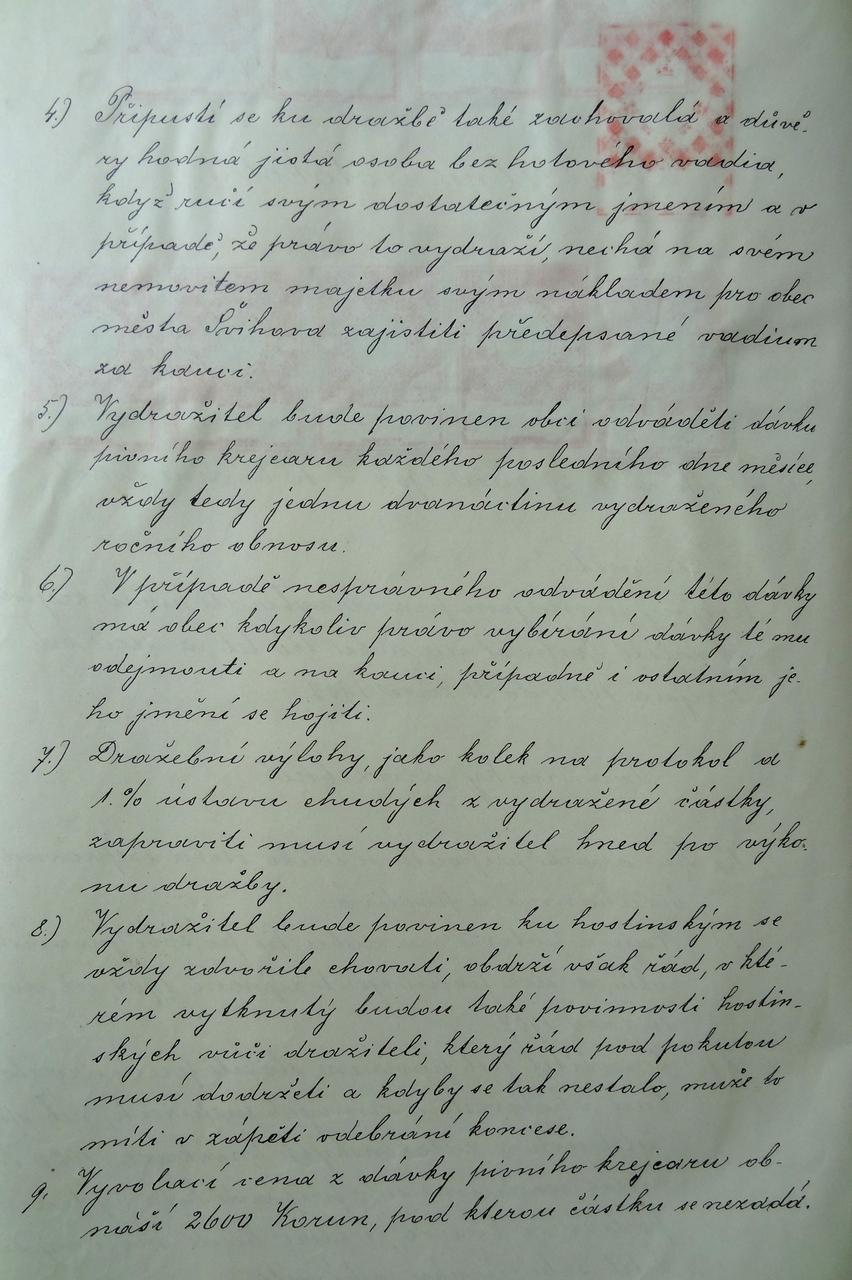 4.) Připustí se ku dražbě také zachovalá a důvě-
ry hodná jistá osoba bez hotového vadia,
když ručí svým dostatečným jmením a v
případě, že právo to vydraží, nechá na svém
nemovitem majetku svým nákladem pro obec
města Švihova zajistiti předepsané vadium
za kauci.
5.) Vydražitel bude povinen obci odváděti dávku
pivního krejcaru každého posledního dne měsíce,
vždy tedy jednu dvanáctinu vydraženého
ročního obnosu.
6.) V případě nesprávného odvádění této dávky
má obec kdykoliv právo vybírání dávky té mu
odejmouti a na kauci, případně i ostatním je-
ho jmění se hojiti.
7.) Dražební výlohy, jako kolek na protokol a
1.% ústavu chudých z vydražené částky,
zapraviti musí vydražitel hned po výko-
nu dražby.
8.) Vydražitel bude povinen ku hostinským se
vždy zdvořile chovati, obdrží však řád, v kté-
rém vytknutý budou také povinnosti hostin-
ských vůči dražiteli, který řád pod pokutou
musí dodržeti a kdyby se tak nestalo, muže to
míti v zápěti odebrání koncese.
9. Vyvolací cena z dávky pivního krejcaru ob-
náší 2600 Korun, pod kterou částku se nezadá.